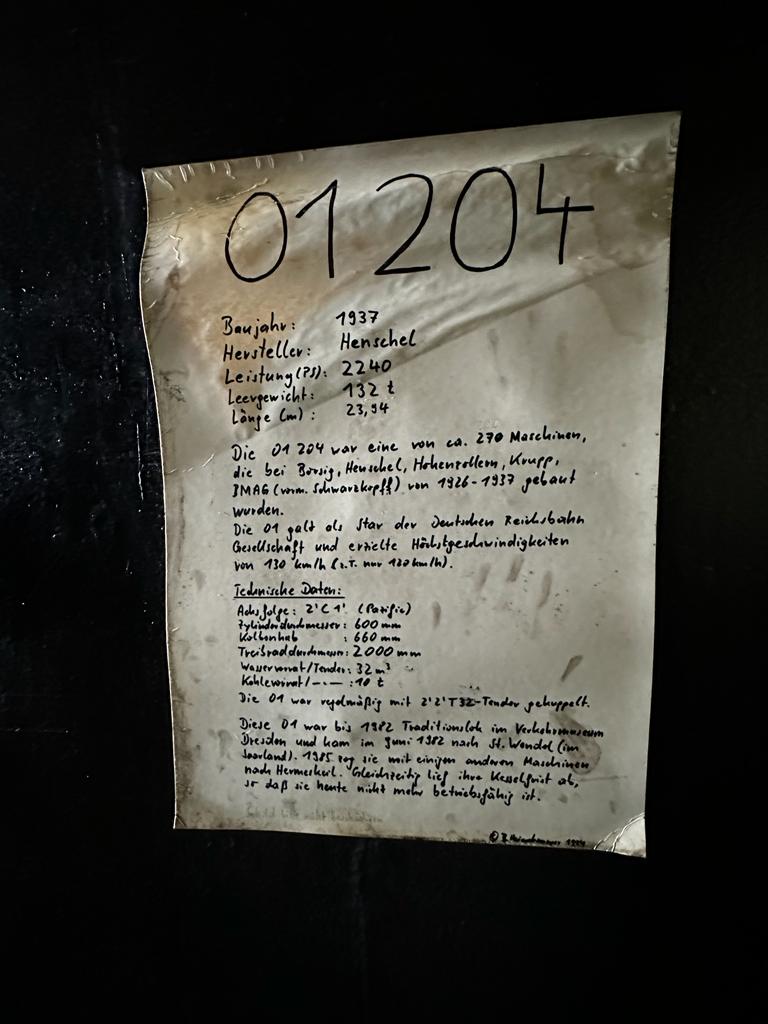 01 204
Baujahr: 1937
Hersteller: Henschel
Leistung (PS): 2240
Leergewicht: 132 t
Länge (m): 23,94
Die 01 204 war eine von ca. 270 Maschinen,
die bei Borsig, Henschel, Hohenzollern, Krupp,
BMAG (vorm. Schwarzkopff) von 1926-1937 gebaut
wurden.
Die 01 galt als Star der Deutschen Reichsbahn
Gesellschaft und erzielte Höchstgeschwindigkeiten
von 130 km/h (z.T. nur 120 km/h).
Technische Daten:
Achsfolge: 2'C1' (Pazific)
Zylinderdurchmesser: 600 mm
Kolbenhub : 660 mm
Treibraddurchmesser: 2000 mm
Wasservorrat/Tender: 32 m³
Kohlevorrat/—·— : 10 t
Die 01 war regelmäßig mit 2'2'T32-Tender gekuppelt.
Diese 01 war bis 1982 Traditionslok im Verkehrsmuseum
Dresden und kam im Juni 1982 nach St. Wendel (im
Saarland). 1985 zog sie mit einigen anderen Maschinen
nach Hermeskeil. Gleichzeitig lief ihre Kesselfrist ab,
so daß sie heute nicht mehr betriebsfähig ist.
©